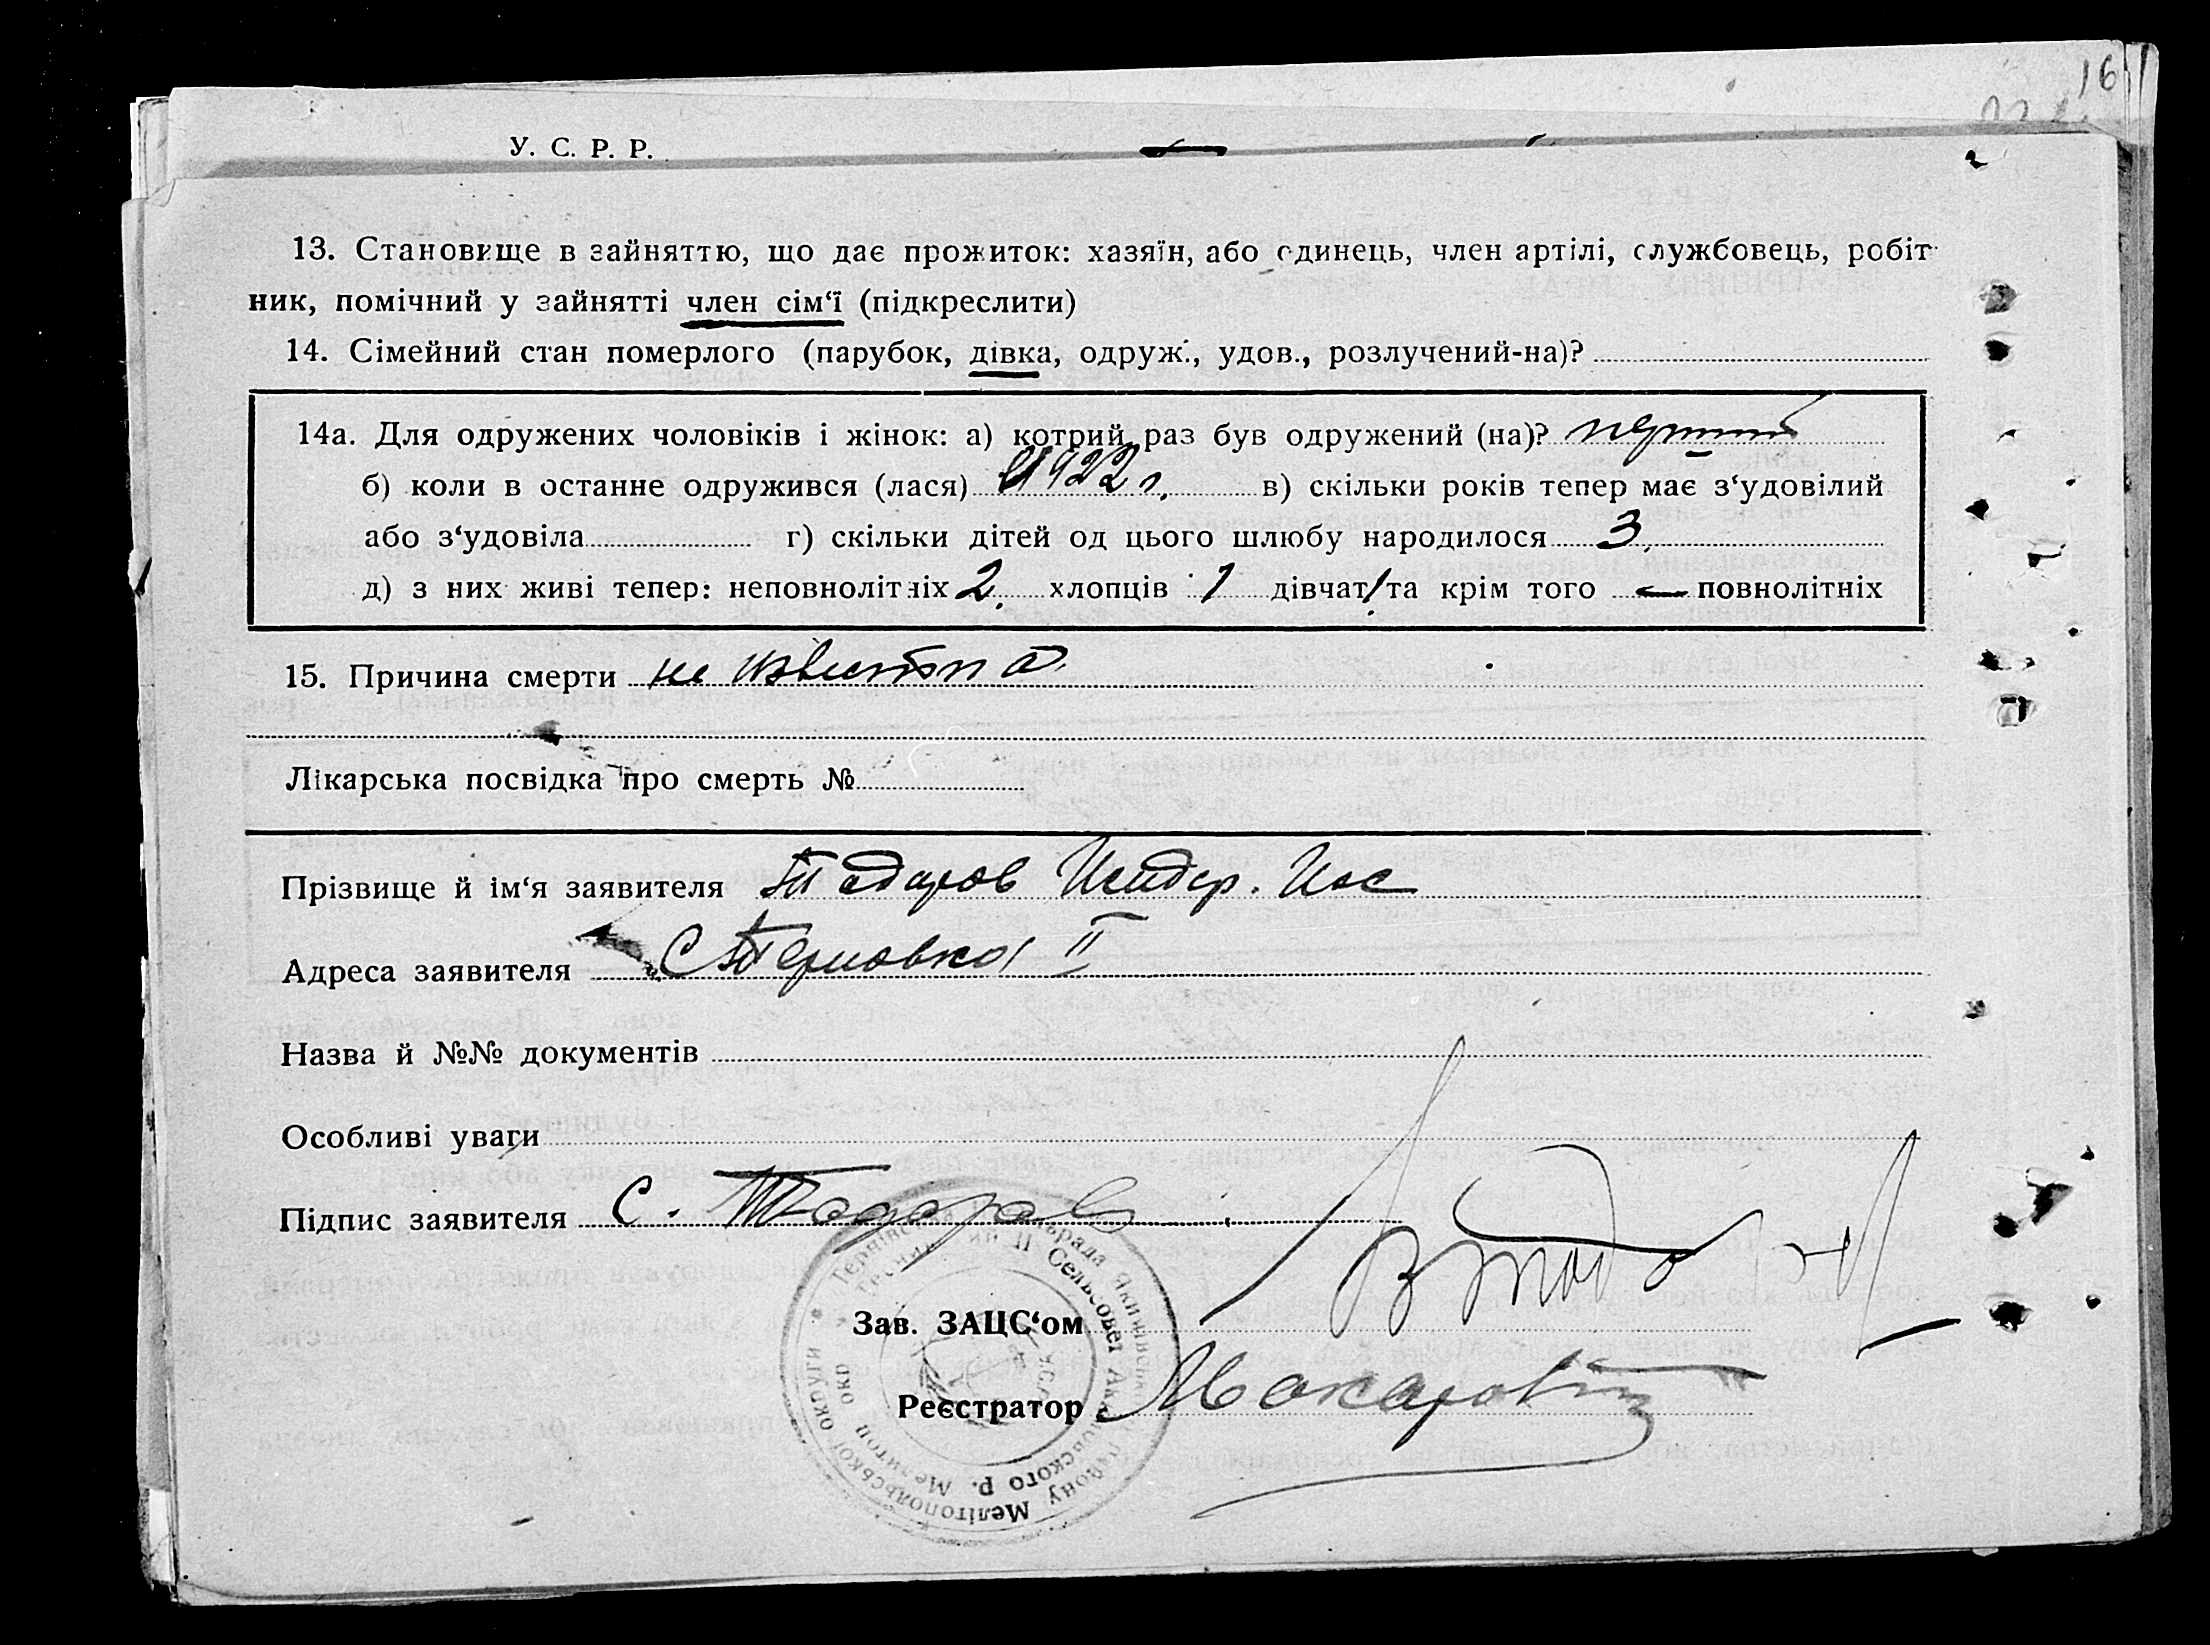 16
У. С. Р. Р.
13. Становище в зайняттю, що дає прожиток: хазяїн, або одинець, член артілі, службовець, робіт-
ник, помічний у зайнятті член сім‘ї (підкреслити)
14. Сімейний стан померлого (парубок, дівка, одруж., удов., розлучений-на)?
14а. Для одружених чоловіків і жінок: а) котрий раз був одружений (на)? первый
б) коли в останне одружився (лася) 1922 г. в) скільки років тепер має з‘удовілий
або з‘удовіла г) скільки дітей од цього шлюбу народилося 3
д) з них живі тепер: неповнолітніх 2 хлопців 1 дівчат 1 та крім того — повнолітніх
15. Причина смерти не известна
Лікарська посвідка про смерть №
Прізвище й ім‘я заявителя Тодоров
Адреса заявителя С Терновка II
Назва й №№ документів
Особливі уваги
Підпис заявителя С. Тодоров
Зав. ЗАЦС‘ом
Реєстратор Макарова